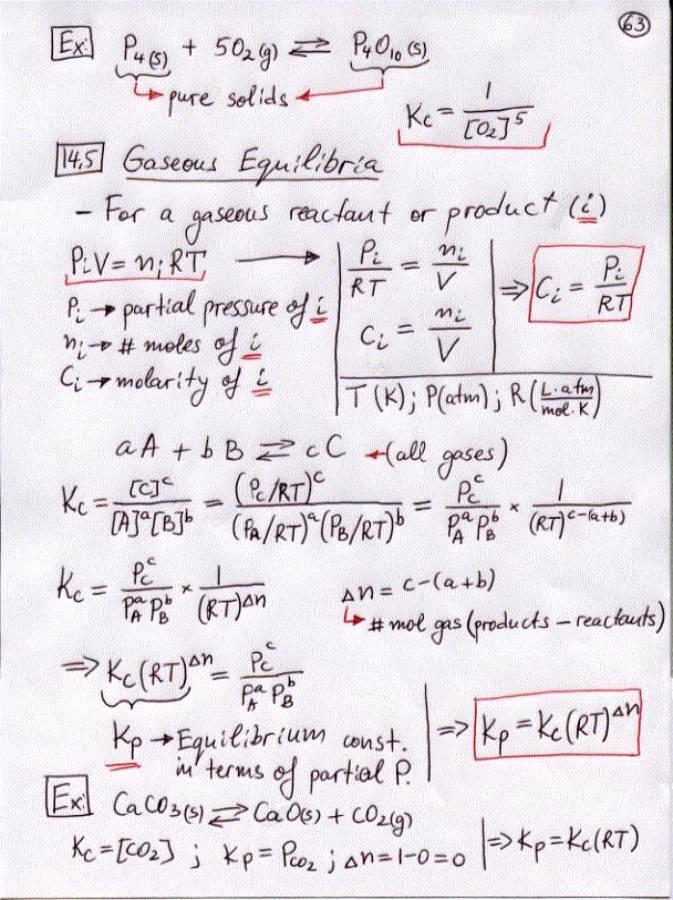 63
Ex: P₄(s) + 5O₂(g) ⇌ P₄O₁₀(s)
↳ pure solids ←
Kc = 1/[O₂]⁵
14.5 Gaseous Equilibria
- For a gaseous reactant or product (i)
PiV = niRT → | Pi/RT = ni/V | ⇒ Ci = Pi/RT
Pi → partial pressure of i
Ci = ni/V
ni → # moles of i
Ci → molarity of i
T(K); P(atm); R(L·atm/mol·K)
aA + bB ⇌ cC ← (all gases)
Kc = [C]ᶜ/[A]ᵃ[B]ᵇ = (Pc/RT)ᶜ/(PA/RT)ᵃ(PB/RT)ᵇ = Pcᶜ/PAᵃPBᵇ × 1/(RT)^c-(a+b)
Kc = Pcᶜ/PAᵃPBᵇ × 1/(RT)^Δn
Δn = c-(a+b)
↳ # mol gas (products - reactants)
⇒ Kc(RT)^Δn = Pcᶜ/PAᵃPBᵇ
Kp → Equilibrium const.
in terms of partial P.
⇒ Kp = Kc(RT)^Δn
Ex: CaCO₃(s) ⇌ CaO(s) + CO₂(g)
Kc = [CO₂] ; Kp = Pco₂ ; Δn = 1-0=0 | ⇒ Kp = Kc(RT)